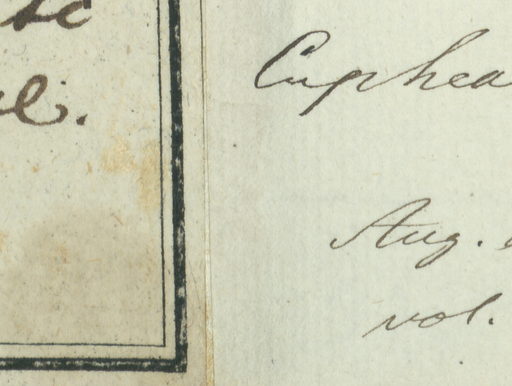 el.
Cuphea
Aug.
vol.